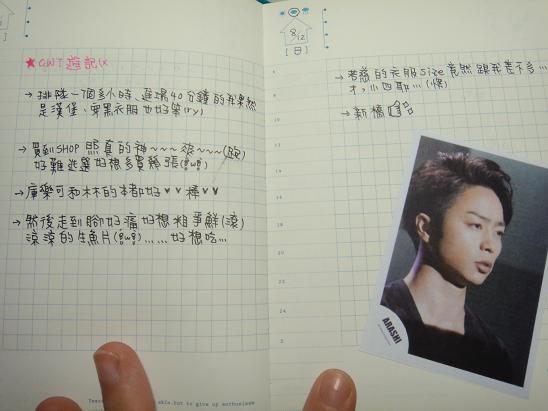 ★CWT遊記(X
→排隊一個多小時、進場40分鐘的我果然
是漢堡、穿黑衣服也好笨(ry)
→買到SHOP照真的神~~~~~~(毆)
好難選還好想多買幾張(ಠ_ಠ)
→庫樂可和木木的本都好♥♥棒♥♥
→然後走到腳好痛好想相爭鮮(滾)
涼涼的生魚片……好想吃…
8/12
[日]
→考慮的衣服size竟然跟我差不多…
才,小四耶…(爆)
→新橋
ARASHI
skin.but to give up enthusiasm